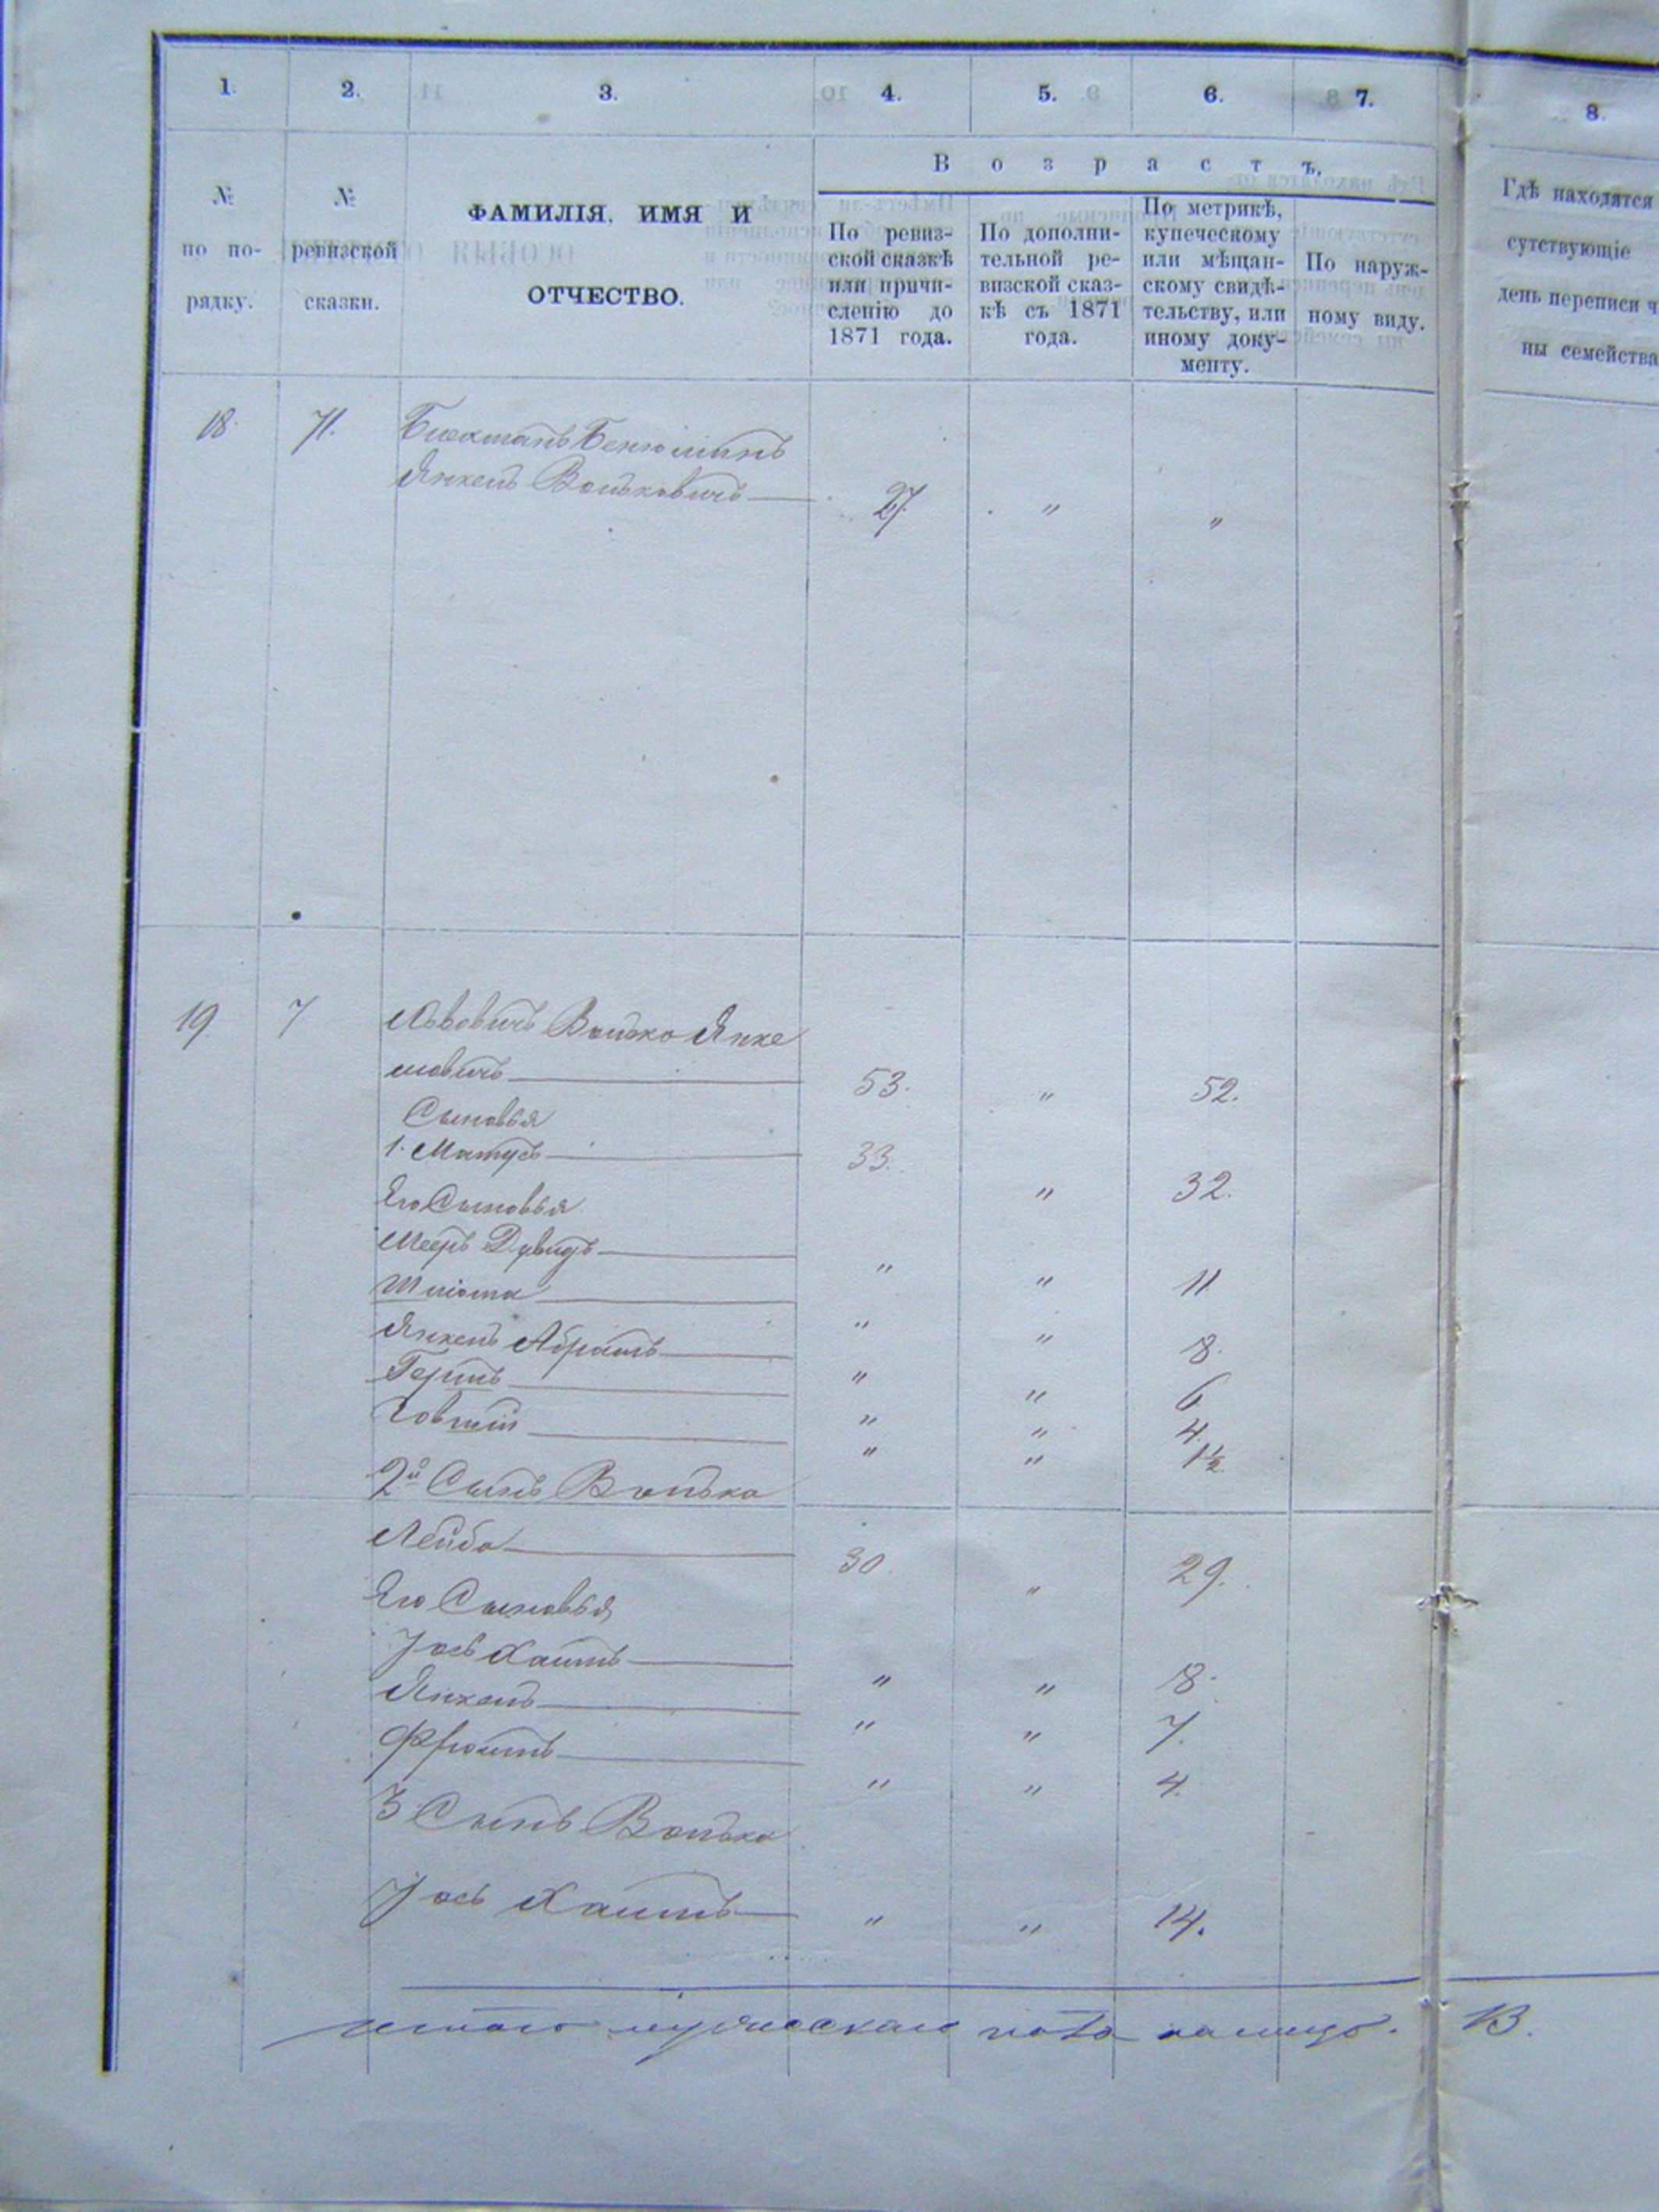 1. 2. 3. 4. 5. 6. 7. 8.
Возрастъ.
№ по порядку.
№ ревизской сказки.
ФАМИЛІЯ, ИМЯ И
ОТЧЕСТВО.
По ревиз-
ской сказкѣ
или причи-
сленію до
1871 года.
По дополни-
тельной ре-
визской сказ-
кѣ съ 1871
года.
По метрикѣ,
купеческому
или мѣщан-
скому свидѣ-
тельству, или
иному доку-
менту.
По наруж-
ному виду.
Гдѣ находятся
сутствующіе
день переписи ч
ны семейства
18. 71. Бенюминъ
Янкель Вольковичъ 27. " "
19. 7 Львовичъ Волько Янке
левичъ 53. " 52.
Сыновья
1. Матусъ 33. " 32.
Его Сыновья
Мееръ Дувидъ " " 11
Шліома " " 8.
Янкель Абрамъ " " 6
Герцъ " " 4.
Говшій " " 1½
2й Сынъ Волька
Лейба 30. " 29.
Его Сыновья
Іось Хаимъ " " 8.
Янкель " " 7.
Фроимъ " " 4.
3 Сынъ Волька
Іось Хаимъ " " 14.
Итого мужескаго пола налицо. 13.